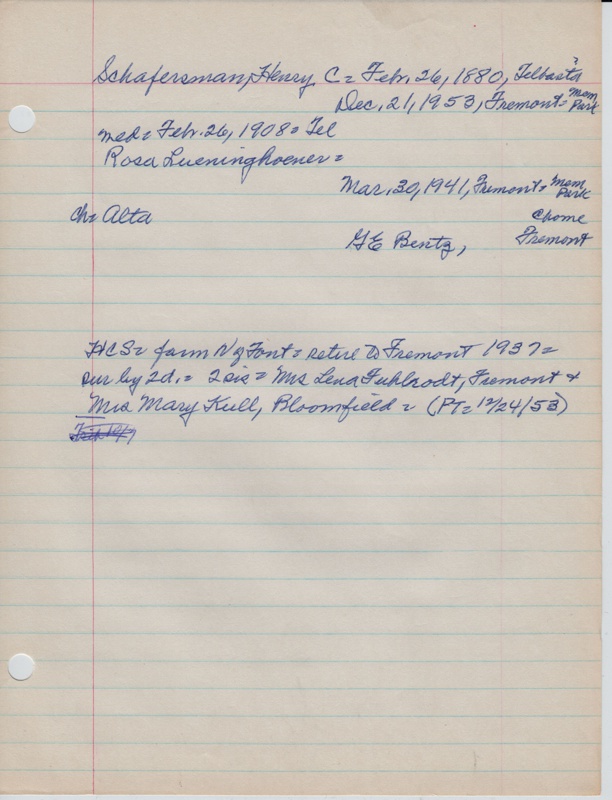 Schafersman, Henry C = Feb. 26, 1880, Telbasta ?
Dec. 21, 1953, Fremont = Mem Park
med = Feb. 26, 1908 = Tel
Rosa Lueninghoener =
Mar. 30, 1941, Fremont = Mem Park
ch = Alta
G E Bentz,
c home Fremont
HCS = farm N of Font = retire to Fremont 1937 =
sur by 2d. = 2 sis = Mrs Lena Fuhlrodt, Fremont +
Mrs Mary Kull, Bloomfield = (PT = 12/24/53)